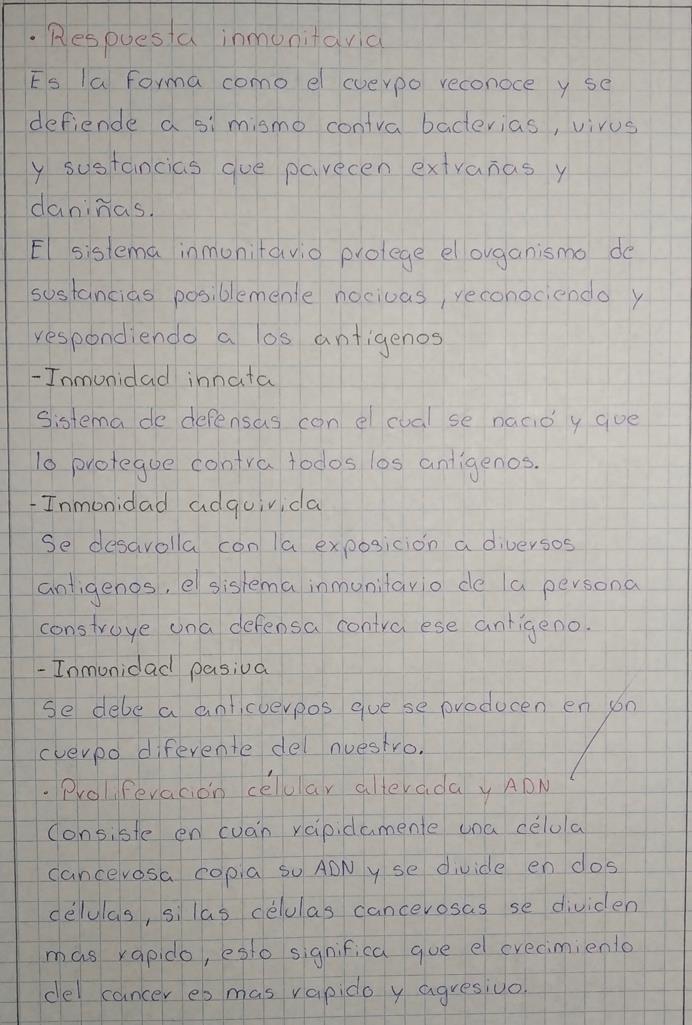 · Respuesta inmunitaria
Es la forma como el cuerpo reconoce y se
defiende a si mismo contra bacterias, virus
y sustancias que parecen extrañas y
daniñas.
El sistema inmunitario protege el organismo de
sustancias posiblemente nocivas, reconociendo y
respondiendo a los antigenos
-Inmunidad innata
Sistema de defensas con el cual se nació y que
lo protegue contra todos los antígenos.
-Inmunidad adquirida
Se desarolla con la exposición a diversos
antigenos, el sistema inmunitario de la persona
construye una defensa contra ese antígeno.
-Inmunidad pasiva
Se debe a anticuerpos que se producen en un
cuerpo diferente del nuestro.
· Proliferación célular alterada y ADN
Consiste en cuán rápidamente una célula
cancerosa copia su ADN y se divide en dos
células, si las células cancerosas se dividen
mas rapido, esto significa que el crecimiento
del cancer es mas rapido y agresivo.